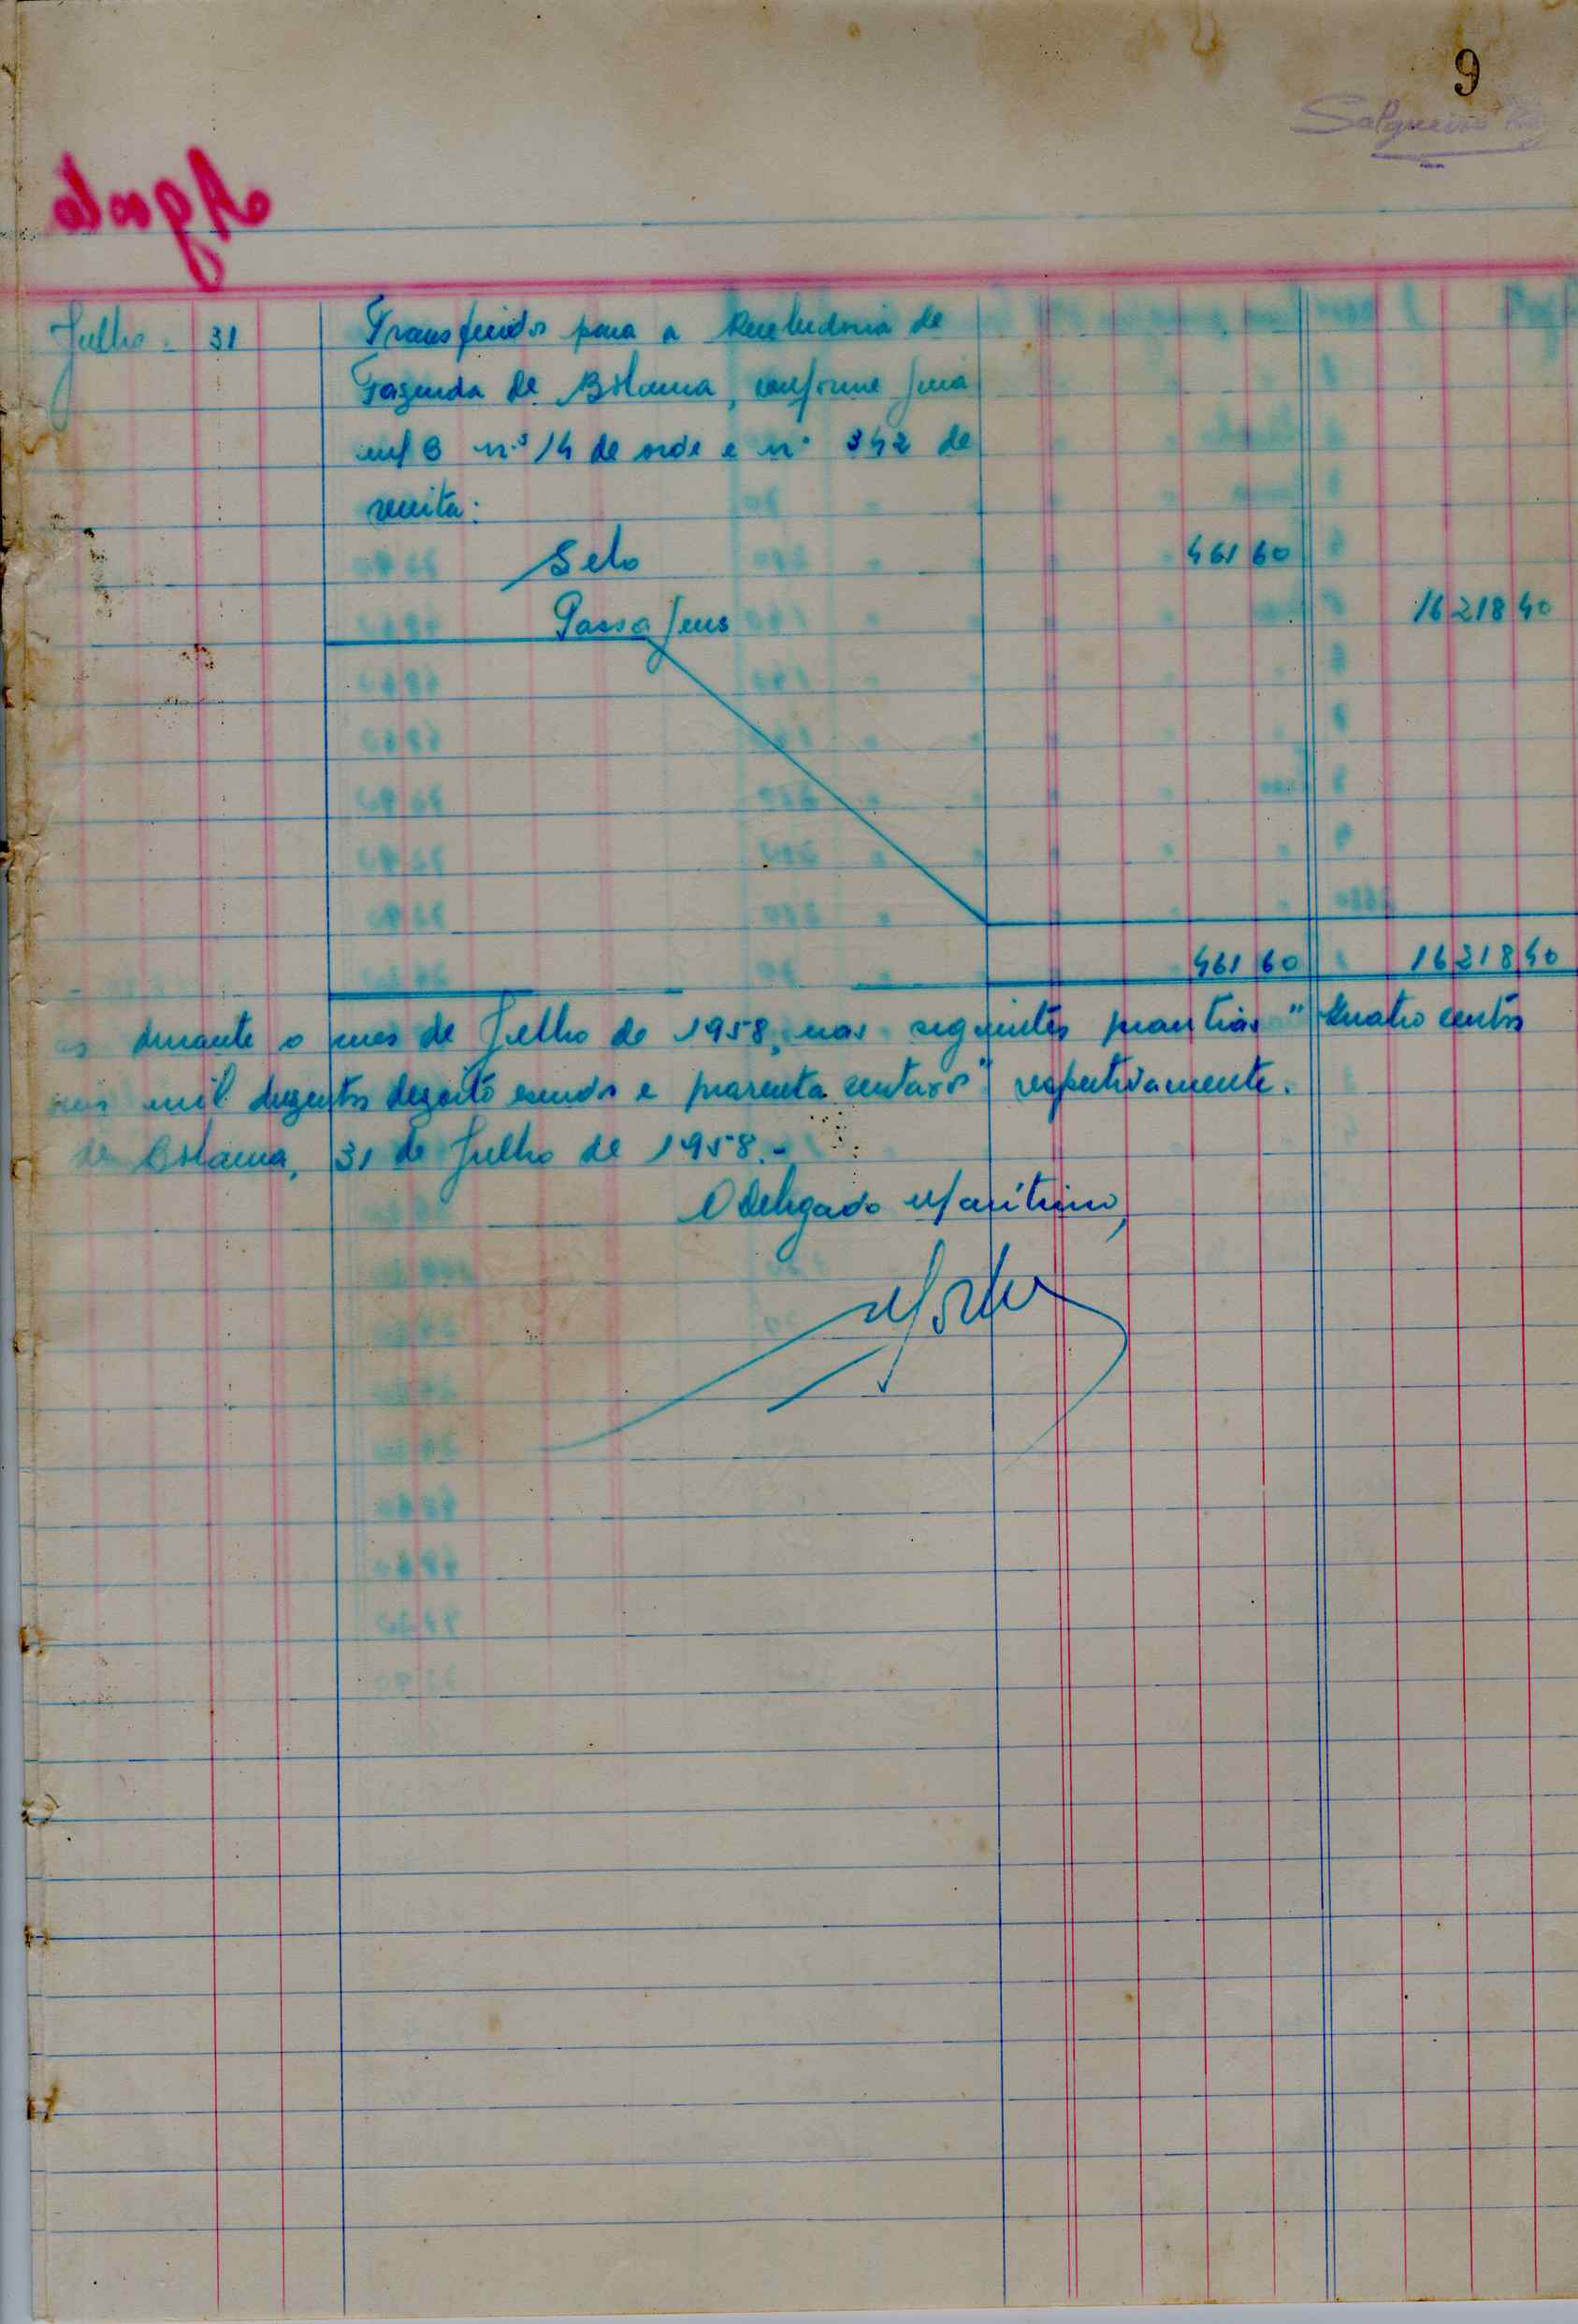 9
Salgueiro
Julho - 31 Transferidos para a Recebedoria de
Fazenda de Bolama, conforme guia
M/B n.º 14 de orde e n.º 342 de
receita:
Selo 461 60
Passagens 16 218 40
461 60 16 218 40
durante o mes de Julho de 1958, nas seguintes quantias "Quatro centos
mil duzentos dezoito escudos e quarenta centavos" respectivamente.
de Bolama, 31 de Julho de 1958.-
O Delegado Marítimo,